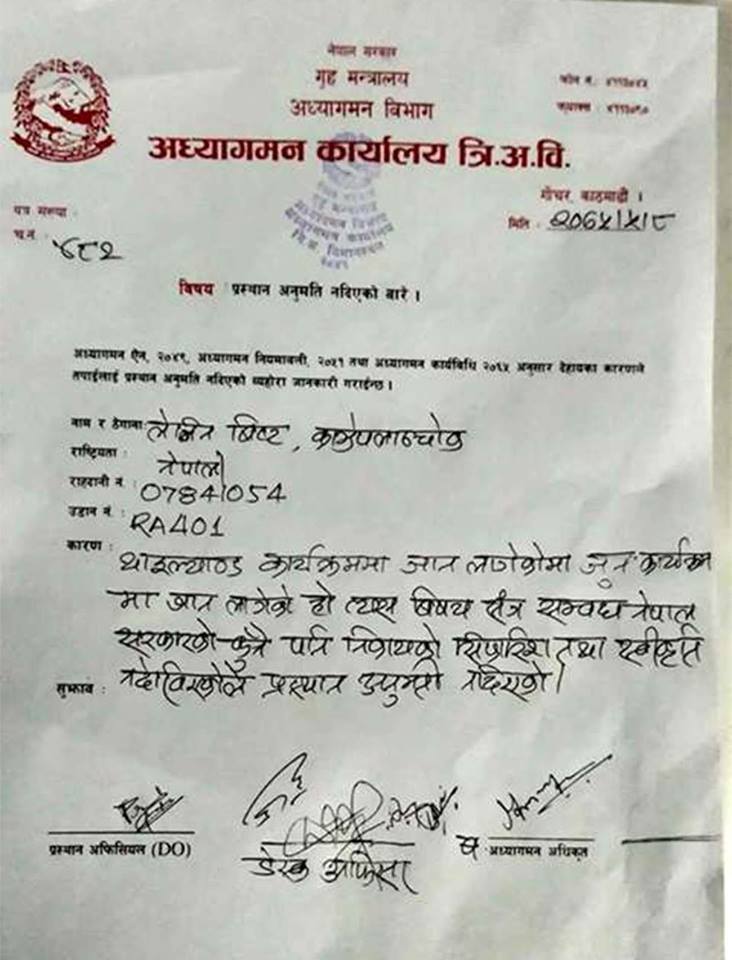 नेपाल सरकार
गृह मन्त्रालय
अध्यागमन विभाग
फोन नं.
अध्यागमन कार्यालय त्रि.अ.वि.
गौचर, काठमाडौं ।
पत्र संख्या :
मिति : २०७५/५/८
च.नं. :
विषय : प्रस्थान अनुमति नदिएको बारे ।
अध्यागमन ऐन, २०४९, अध्यागमन नियमावली, २०५१ तथा अध्यागमन कार्यविधि २०६५ अनुसार देहायका कारणले
तपाईलाई प्रस्थान अनुमति नदिएको व्यहोरा जानकारी गराईन्छ ।
नाम र ठेगाना: लेनिन बिष्ट, काभ्रेपलाञ्चोक
राष्ट्रियता : नेपाली
राहदानी नं : 07841054
उडान नं. : RA401
कारण : थाइल्याण्ड कार्यक्रममा जान लागेकोमा जुन कार्यक्रम
मा जान लागेको हो त्यस बिषय सँग सम्बन्धि नेपाल
सरकारको कुनै पनि निकायको सिफारिश तथा स्वीकृति
सुझाव : नदेखिएकोले प्रस्थान अनुमती नदिएको ।
प्रस्थान अफिसियल (DO)
डेस्क अफिसर
अध्यागमन अधिकृत